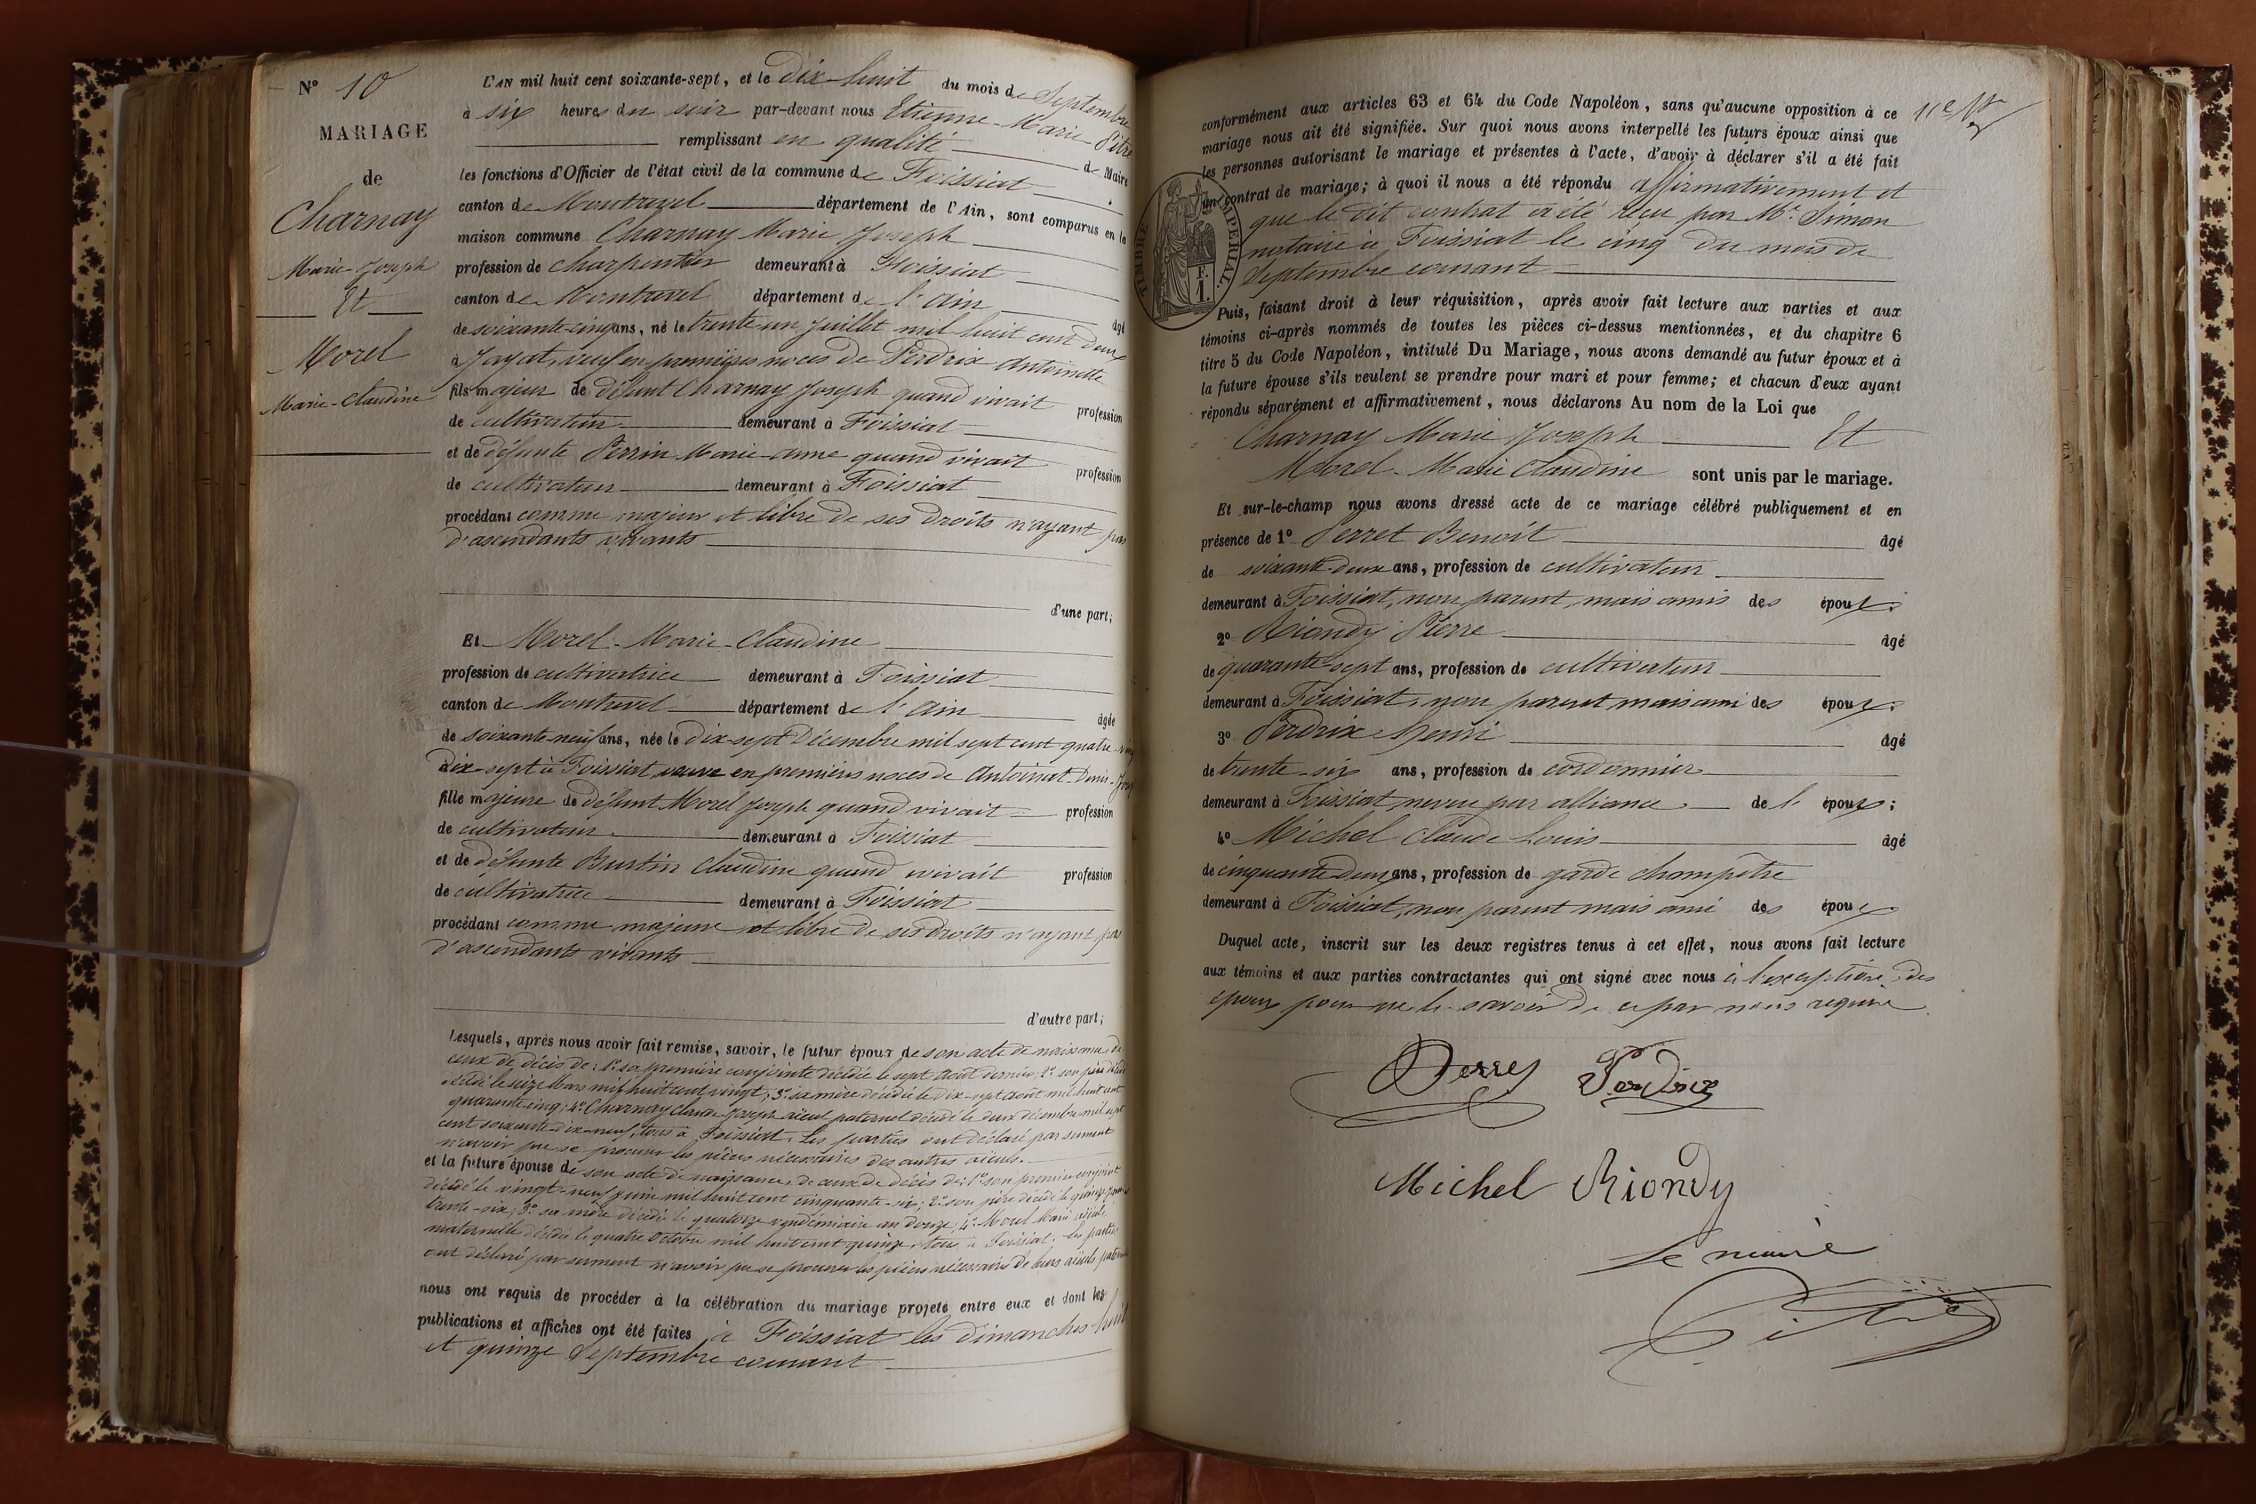 N° 10
MARIAGE
de
Charnay
Marie-Joseph
Et
Morel
Marie-Claudine
L'AN mil huit cent soixante-sept, et le dix huit du mois de Septembre
à six heures du soir par-devant nous Etienne-Marie Pitre
remplissant en qualité de Maire
les fonctions d'Officier de l'état civil de la commune de Foissiat
canton de Montrevel département de l'Ain, sont comparus en la
maison commune Charnay Marie Joseph
profession de charpentier demeurant à Foissiat
canton de Montrevel département de l'Ain âgé
de soixante-cinq ans, né le trente-un Juillet mil huit cent deux
à Jayat, veuf en premières noces de Perdrix Antoinette
fils majeur de défunt Charnay Joseph quand vivait profession
de cultivateur demeurant à Foissiat
et de défunte Perrin Marie-anne quand vivait profession
de cultivateur demeurant à Foissiat
procédant comme majeur et libre de ses droits n'ayant pas
d'ascendants vivants
d'une part;
Et Morel-Marie-Claudine
profession de cultivatrice demeurant à Foissiat
canton de Montrevel département de l'Ain âgée
de soixante-neuf ans, née le dix-sept Décembre mil sept cent quatre-vingt
dix-sept à Foissiat veuve en premières noces de Antoinat Denis-
fille majeure de défunt Morel Joseph quand vivait profession
de cultivateur demeurant à Foissiat
et de défunte Burtin Claudine quand vivait profession
de cultivatrice demeurant à Foissiat
procédant comme majeure et libre de ses droits n'ayant pas
d'ascendants vivants
d'autre part;
Lesquels, après nous avoir fait remise, savoir, le futur époux de son acte de naissance, de
ceux de décès de: 1° sa première conjointe décédée le sept Août dernier, 2° son père décédé
le seize Mars mil huit cent vingt; 3° sa mère décédée le dix-sept août mil huit cent
quarante cinq; 4° Charnay Claude Joseph aïeul paternel décédé le deux décembre mil sept
cent soixante-dix-neuf, tous à Foissiat. Les parties ont déclaré par serment
n'avoir pu se procurer les pièces nécessaires des autres aïeuls.
et la future épouse de son acte de naissance, de ceux de décès de: 1° son premier conjoint
décédé le vingt-neuf Juin mil huit cent cinquante-six; 2° son père décédé le quinze
trente-six; 3° sa mère décédée le quatorze vendémiaire an douze; 4° Morel Marie aïeule
maternelle décédée le quatre Octobre mil huit cent quinze, tous à Foissiat. les parties
ont déclaré par serment n'avoir pu se procurer les pièces nécessaires de leurs aïeuls
nous ont requis de procéder à la célébration du mariage projeté entre eux et dont les
publications et affiches ont été faites à Foissiat les dimanches huit
et quinze Septembre courant
conformément aux articles 63 et 64 du Code Napoléon, sans qu'aucune opposition à ce
mariage nous ait été signifiée. Sur quoi nous avons interpellé les futurs époux ainsi que
les personnes autorisant le mariage et présentes à l'acte, d'avoir à déclarer s'il a été fait
un contrat de mariage; à quoi il nous a été répondu affirmativement et
que le dit contrat a été reçu par Me Simon
notaire à Foissiat le cinq du mois de
Septembre courant
TIMBRE IMPERIAL
F.
1.
Puis, faisant droit à leur réquisition, après avoir fait lecture aux parties et aux
témoins ci-après nommés de toutes les pièces ci-dessus mentionnées, et du chapitre 6
titre 5 du Code Napoléon, intitulé Du Mariage, nous avons demandé au futur époux et à
la future épouse s'ils veulent se prendre pour mari et pour femme; et chacun d'eux ayant
répondu séparément et affirmativement, nous déclarons Au nom de la Loi que
Charnay Marie Joseph Et
Morel-Marie Claudine sont unis par le mariage.
Et sur-le-champ nous avons dressé acte de ce mariage célébré publiquement et en
présence de 1° Perret Benoît âgé
de soixante-deux ans, profession de cultivateur
demeurant à Foissiat, non parent, mais amis des époux;
2° Riondy Pierre âgé
de quarante-sept ans, profession de cultivateur
demeurant à Foissiat, non parent mais ami des époux;
3° Perdrix Henri âgé
de trente-six ans, profession de cordonnier
demeurant à Foissiat neveu par alliance de l' époux;
4° Michel Claude Louis âgé
de cinquante deux ans, profession de garde champêtre
demeurant à Foissiat, non parent mais ami des époux
Duquel acte, inscrit sur les deux registres tenus à cet effet, nous avons fait lecture
aux témoins et aux parties contractantes qui ont signé avec nous à l'exception des
époux pour ne le savoir de ce par nous requis
Perret Perdrix
Michel Riondy
Le maire
Pitre